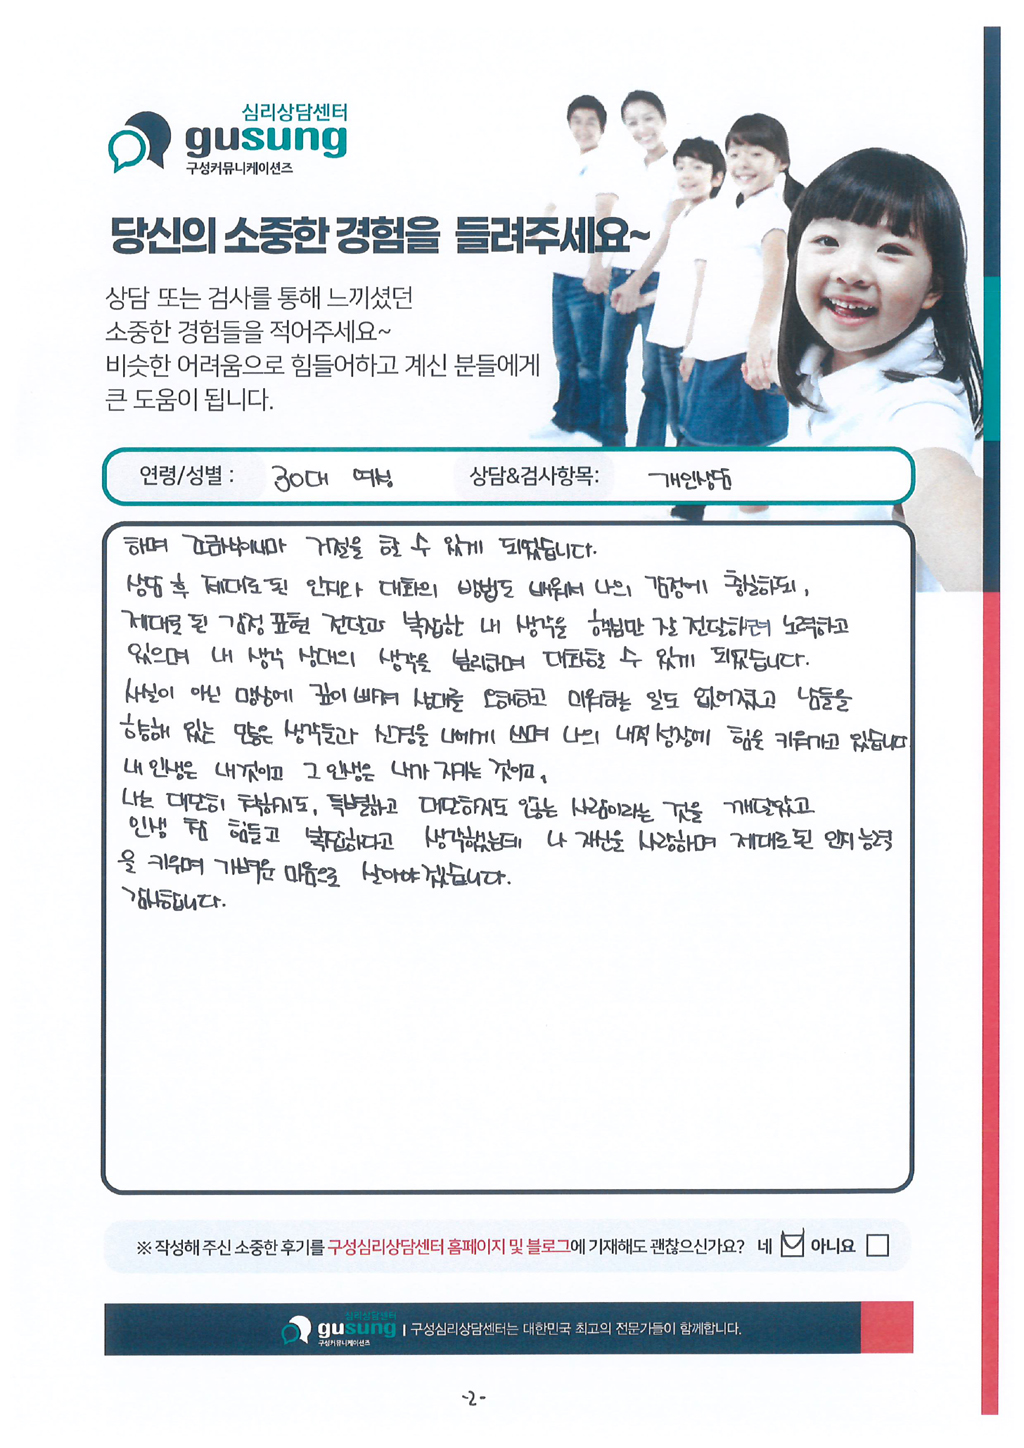 심리상담센터
gusung
구성커뮤니케이션즈
당신의 소중한 경험을 들려주세요~
상담 또는 검사를 통해 느끼셨던
소중한 경험들을 적어주세요~
비슷한 어려움으로 힘들어하고 계신 분들에게
큰 도움이 됩니다.
연령/성별 : 30대 여성 상담&검사항목: 개인상담
하며 조금씩이나마 거절을 할 수 있게 되었습니다.
상담 후 제대로 된 인지와 대화의 방법도 배워서 나의 감정에 충실하되,
제대로 된 감정 표현 전달과 복잡한 내 생각을 핵심만 잘 전달하려 노력하고
있으며 내 생각 상대의 생각을 분리하며 대화할 수 있게 되었습니다.
사실이 아닌 망상에 깊이 빠져 상대를 오해하고 미워하는 일도 없어졌고 남들을
향해 있는 많은 생각들과 신경을 나에게 쓰며 나의 내적 성장에 힘을 키워가고 있습니다
내 인생은 내것이고 그 인생은 내가 지키는 것이고,
나는 대단히 착하지도, 특별하고 대단하지도 않는 사람이라는 것을 깨달았고
인생 참 힘들고 복잡하다고 생각했는데 나 자신을 사랑하며 제대로 된 인지 능력
을 키우며 가벼운 마음으로 살아야겠습니다.
감사합니다.
※ 작성해 주신 소중한 후기를 구성심리상담센터 홈페이지 및 블로그에 기재해도 괜찮으신가요? 네 아니요
심리상담센터
gusung | 구성심리상담센터는 대한민국 최고의 전문가들이 함께합니다.
구성커뮤니케이션즈
-2-